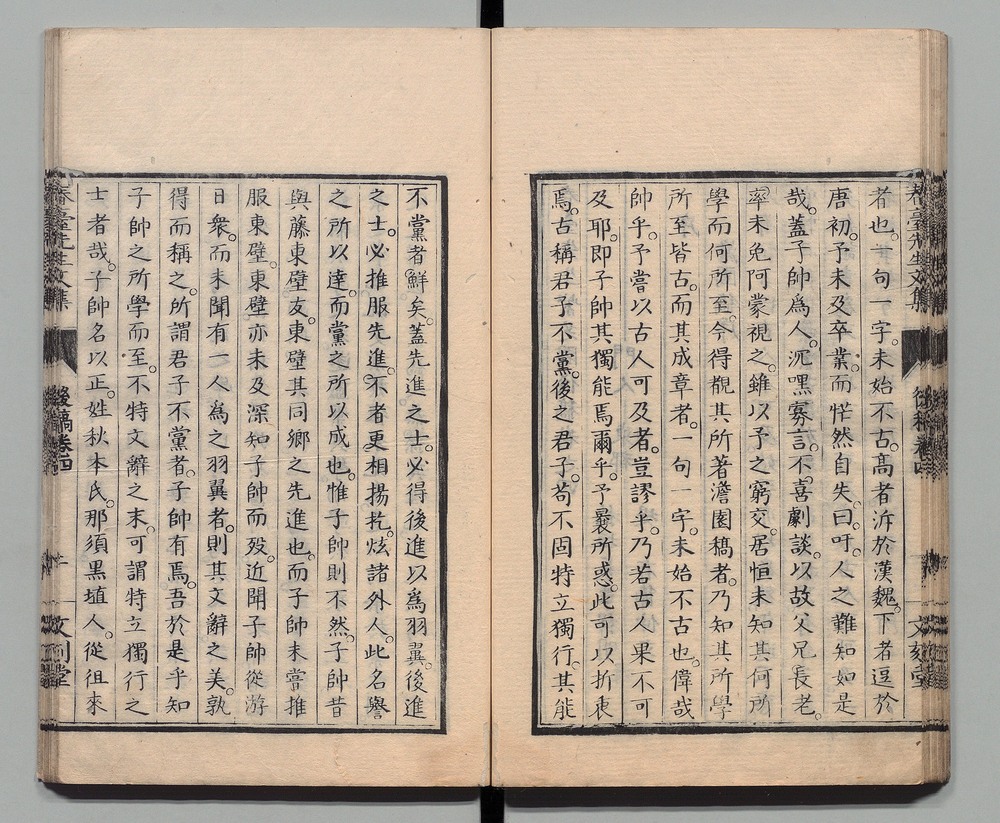 春臺先生文集 後稿卷四 文刻堂
者也。一句一字。未始不古。高者泝於漢魏。下者逗於
唐初。予未及卒業。而恍然自失。曰。吁。人之難知如是
哉。蓋子帥爲人。沉嘿寡言。不喜劇談。以故父兄長老。
率未免阿蒙視之。雖以予之窮交。居恒未知其何所
學而何所至。今得覩其所著澹園稿者。乃知其所學
所至皆古。而其成章者。一句一字。未始不古也。偉哉
帥乎。予嘗以古人可及者。豈謬乎。乃若古人果不可
及耶。即子帥其獨能焉爾乎。予曩所惑。此可以折衷
焉。古稱君子不黨。後之君子。苟不固特立獨行。其能
不黨者鮮矣。蓋先進之士。必得後進以爲羽翼。後進
之士。必推服先進。不者更相揚扢。炫諸外人。此名譽
之所以達。而黨之所以成也。惟子帥則不然。子帥昔
與藤東壁友。東壁其同鄉之先進也。而子帥未嘗推
服東壁。東壁亦未及深知子帥而歿。近聞子帥從游
日衆。而未聞有一人爲之羽翼者。則其文辭之美。孰
得而稱之。所謂君子不黨者。子帥有焉。吾於是乎知
子帥之所學而至。不特文辭之末。可謂特立獨行之
士者哉。子帥名以正。姓秋本氏。那須黑埴人。從徂來
春臺先生文集 後稿卷四 文刻堂